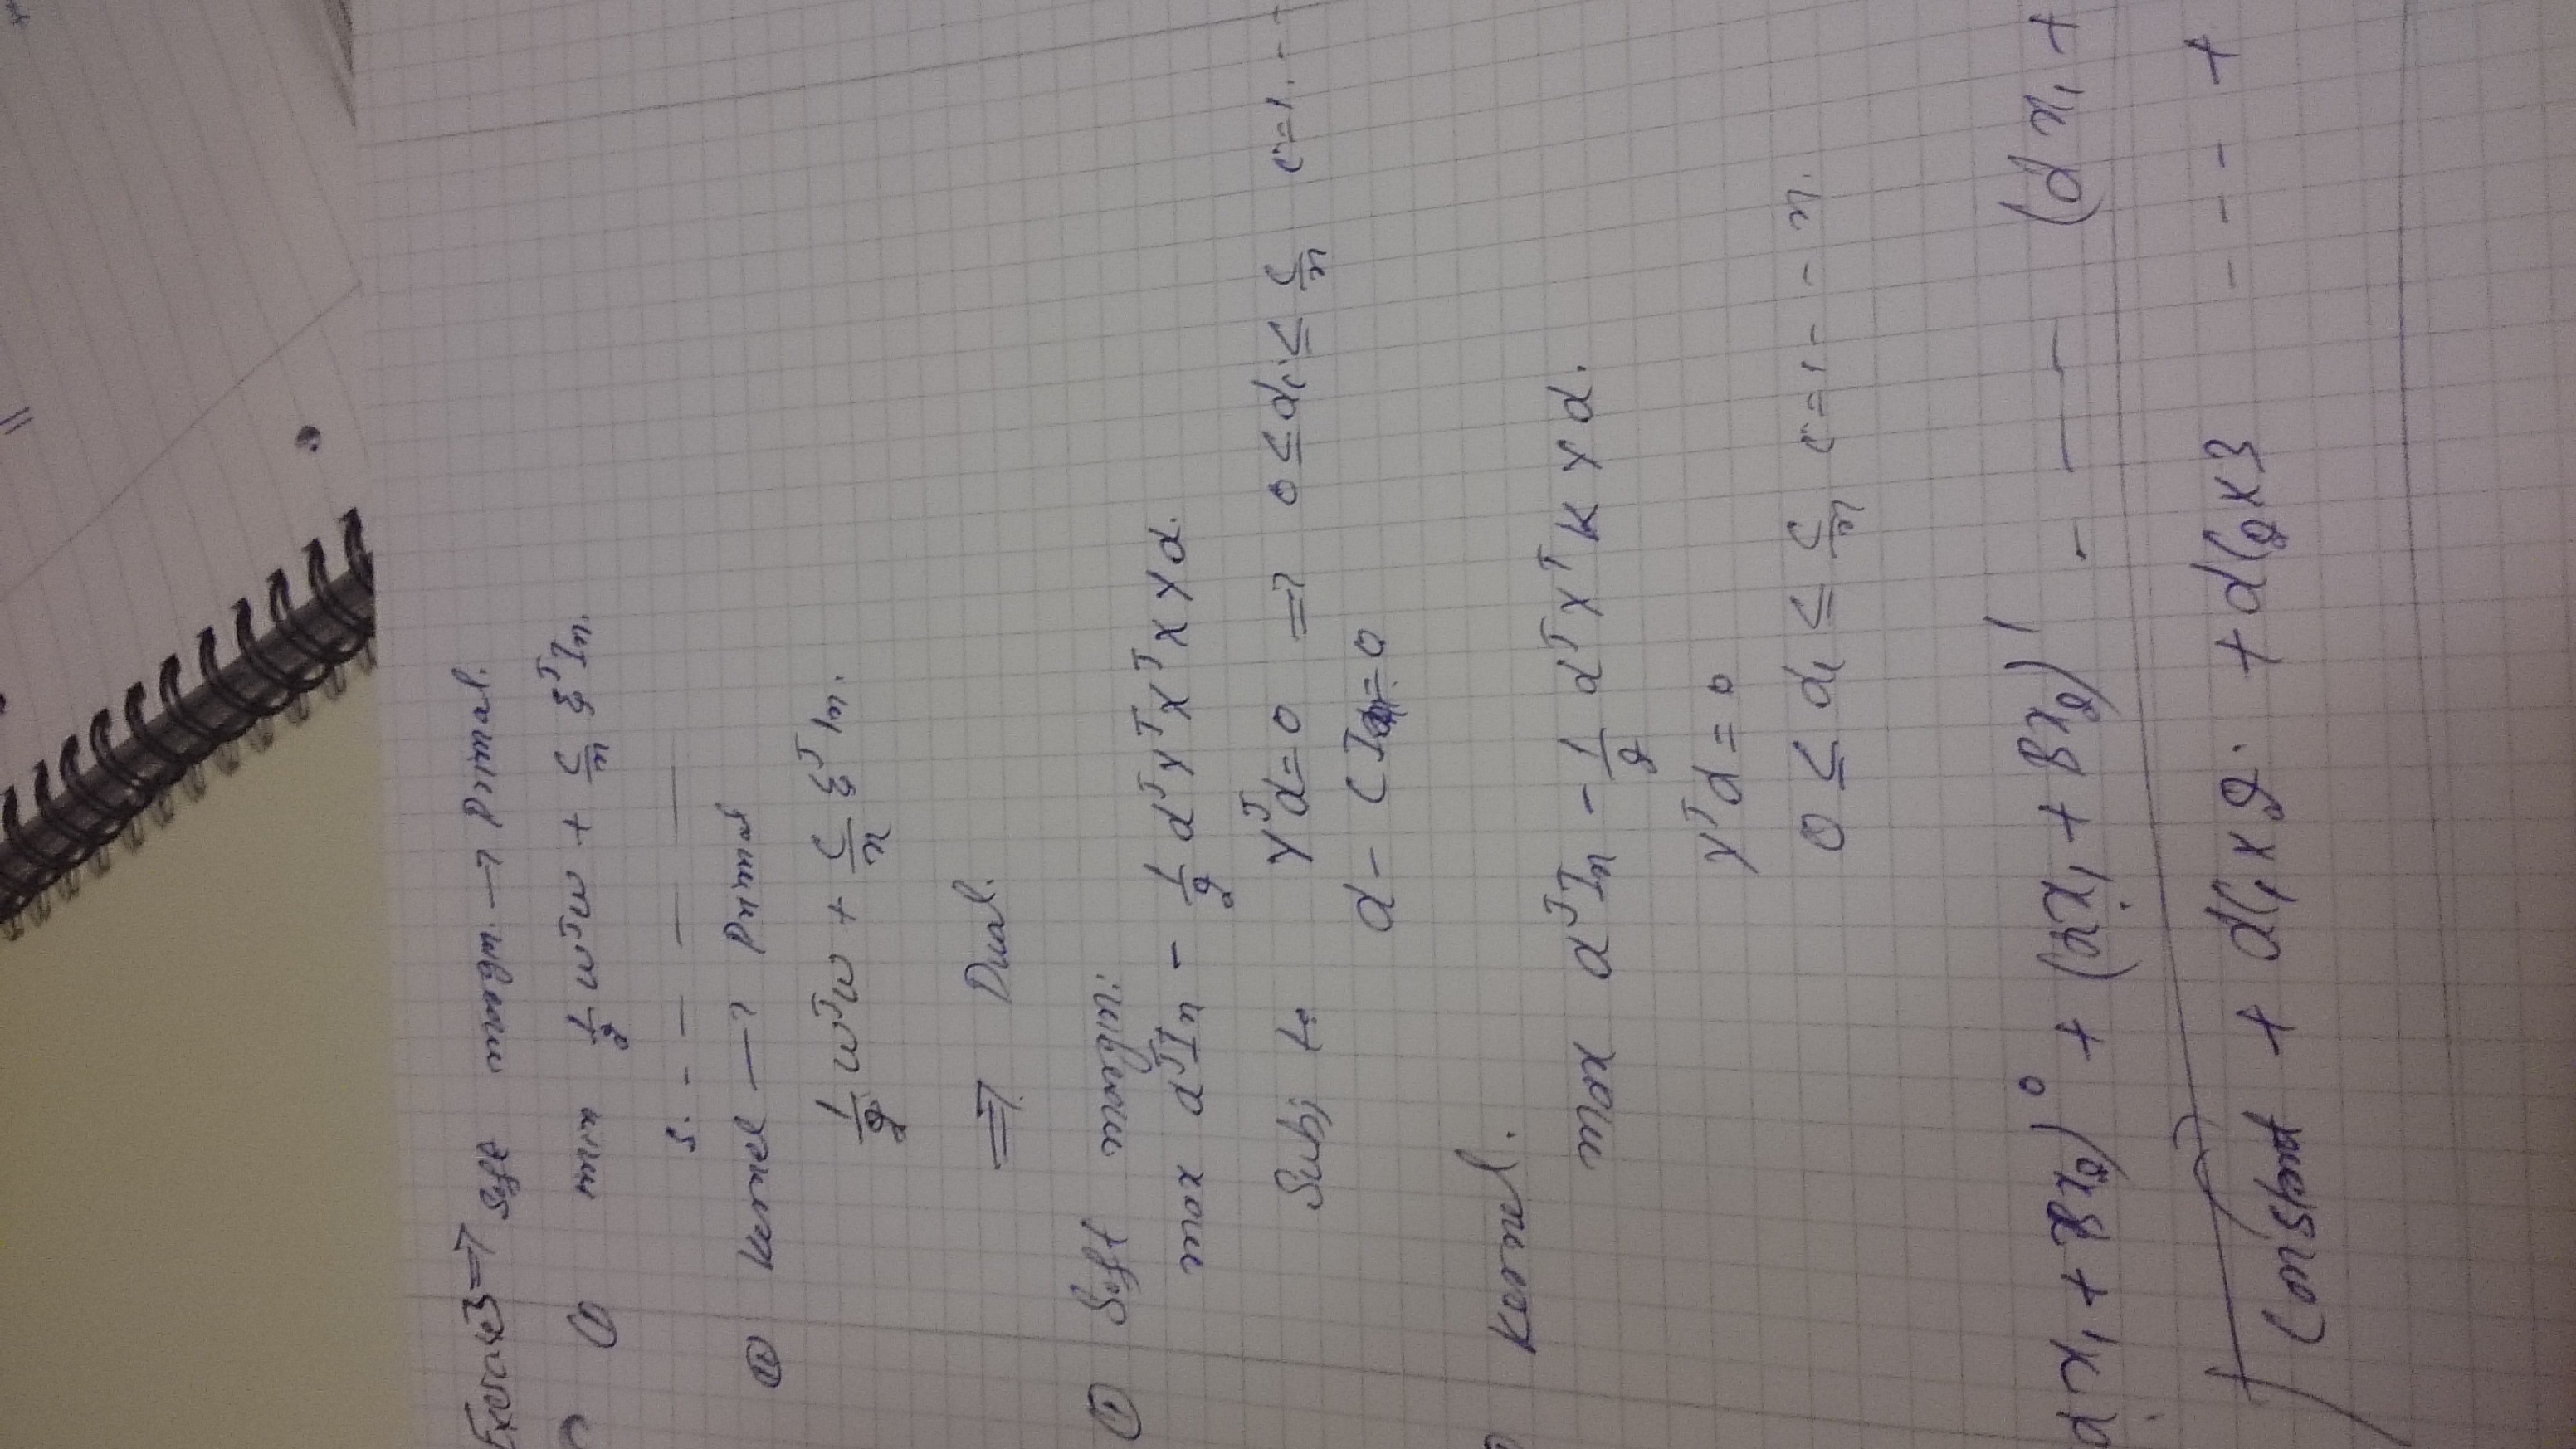 Exercise3 => Soft margin. → Primal.
(1) min 1/2 wᵀw + C/n ξᵀIn.
s. - — — —
(ii) Kernel → Primal
1/2 wᵀw + C/n ξᵀ1n.
=> Dual.
(1) Soft margin:
max αᵀIn - 1/2 αᵀYᵀXᵀXYα.
Subj to Yᵀα=0 => 0≤αi≤ C/n i=1. - -
α - CI =0
Kernel.
max αᵀIn - 1/2 αᵀYᵀKYα.
Yᵀα=0
0 ≤ αi ≤ C/n i=1 - - n.
αx₁ + Bx₂)⁰ + (αx₁ + Bx₂)¹ - — — (αx₁ +
Constant + αC₁x2. + αC₂x3 - - - +